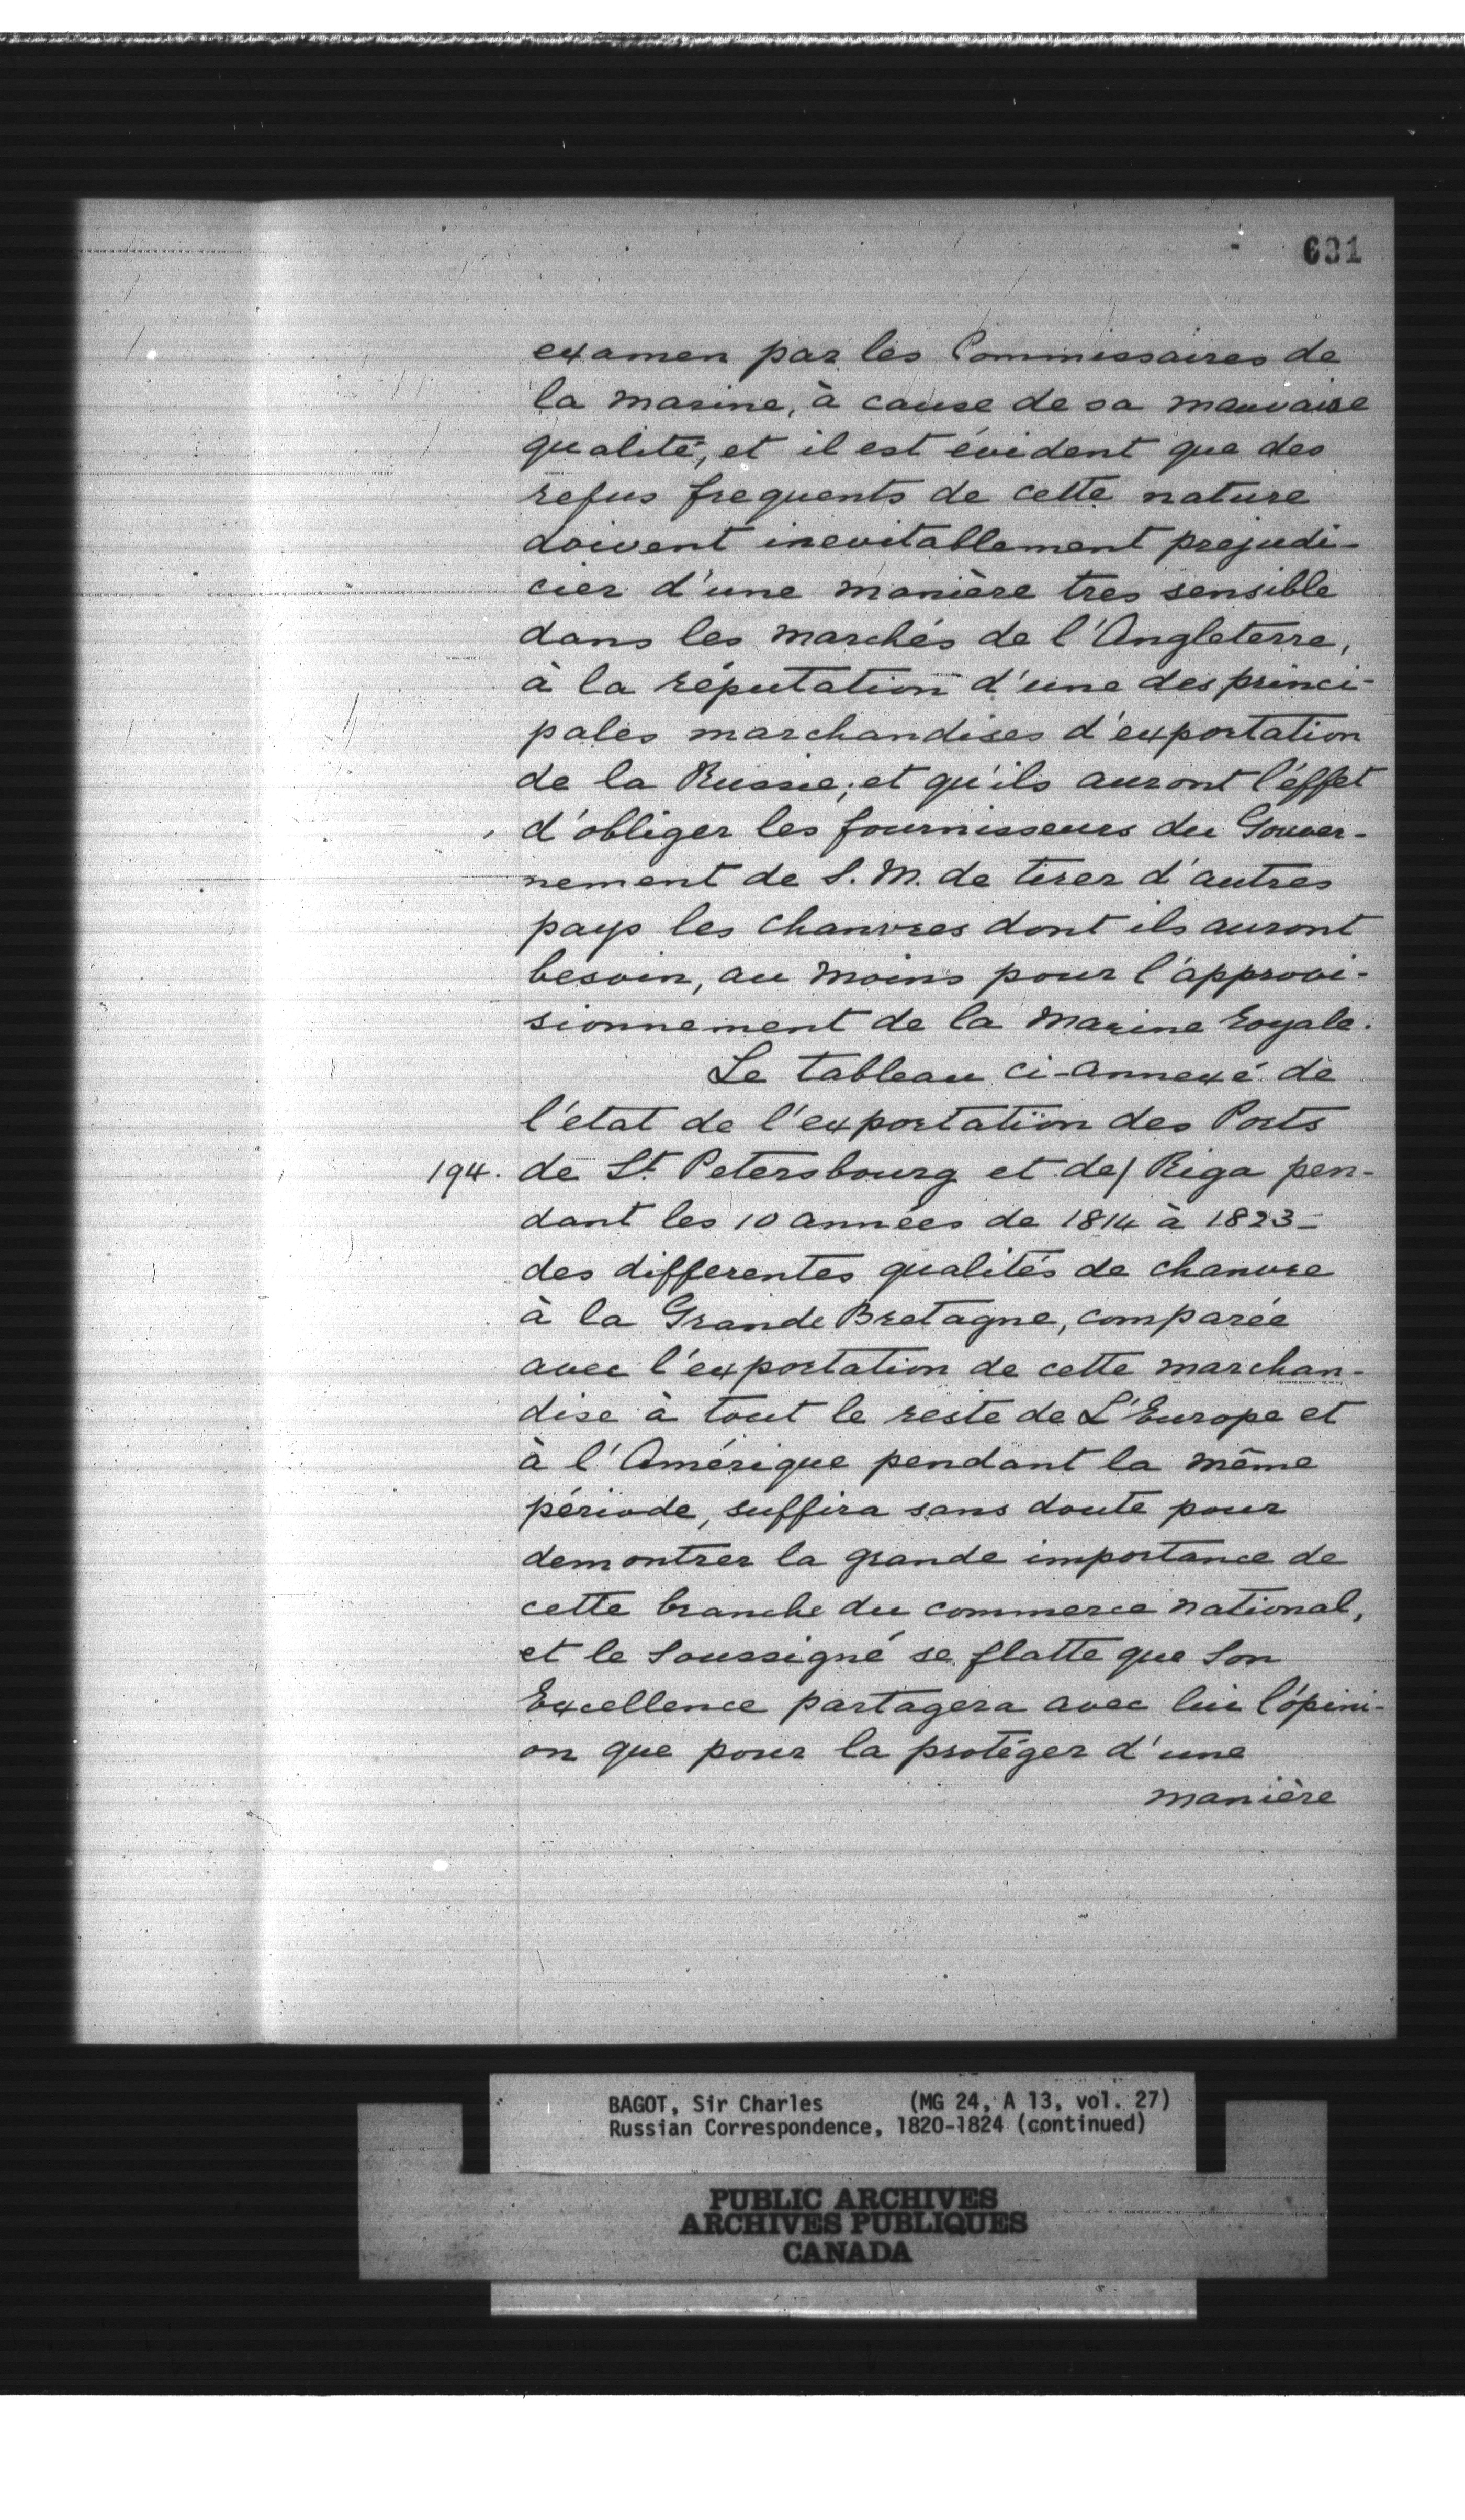 631
examen par les Commissaires de
la marine, à cause de sa mauvaise
qualité, et il est évident que des
refus frequents de cette nature
doivent inevitablement prejudi-
cier d'une manière tres sensible
dans les marchés de l'Angleterre,
à la réputation d'une des princi-
pales marchandises d'exportation
de la Russie; et qu'ils auront l'éffet
d'obliger les fournisseurs du Gouver-
nement de S. M. de tirer d'autres
pays les chanvres dont ils auront
besoin, au moins pour l'approvi-
sionnement de la Marine royale.
Le tableau ci-annexé de
l'etat de l'exportation des Ports
194. de St. Petersbourg et de/ Riga pen-
dant les 10 années de 1814 à 1823-
des differentes qualités de chanvre
à la Grande Bretagne, comparée
avec l'exportation de cette marchan-
dise à tout le reste de L'Europe et
à l'Amérique pendant la même
période, suffira sans doute pour
demontrer la grande importance de
cette branche du commerce national,
et le Soussigné se flatte que Son
Excellence partagera avec lui l'ópini-
on que pour la protéger d'une
manière
BAGOT, Sir Charles (MG 24, A 13, vol. 27)
Russian Correspondence, 1820-1824 (continued)
PUBLIC ARCHIVES
ARCHIVES PUBLIQUES
CANADA